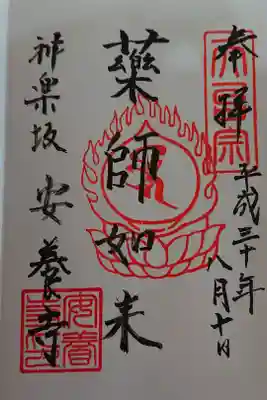 奉拝
平成三十年八月十日
薬師如来
神楽坂 安養寺